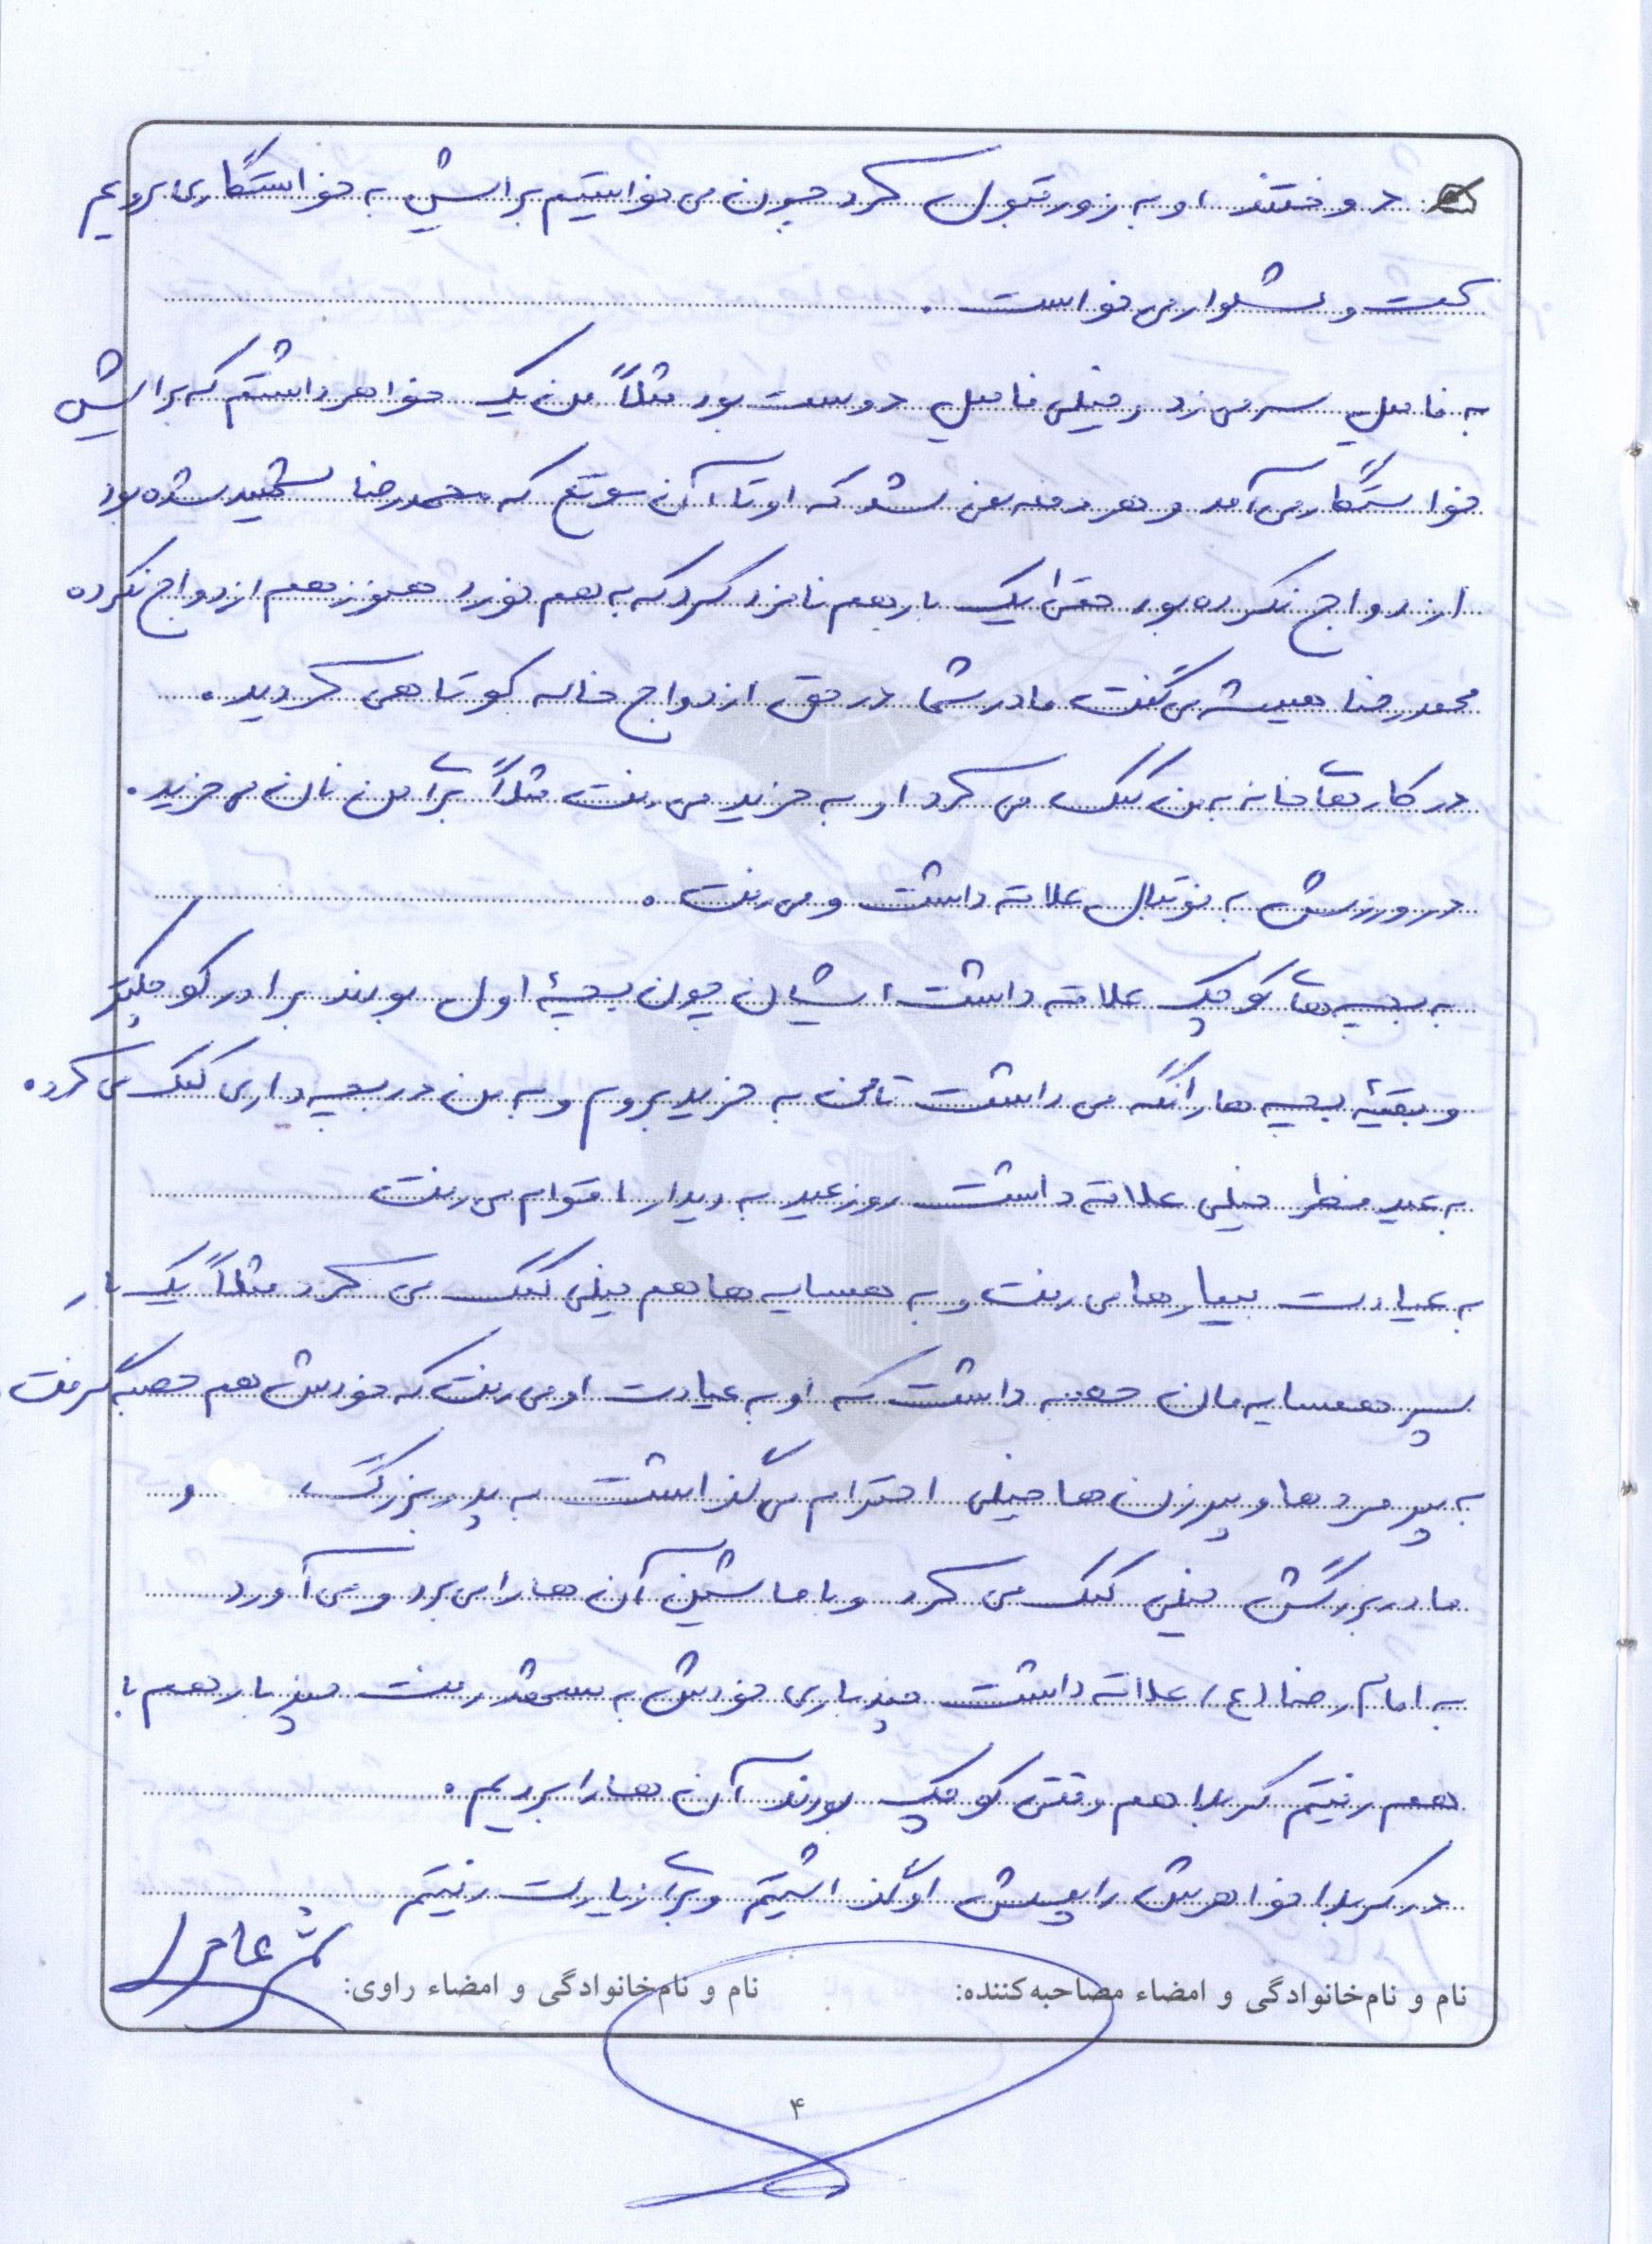 دوختند او به زور قبول کرد چون می خواستیم برایش به خواستگاری برویم
کت و شلوار می خواست .
به فامیل سر می زد و خیلی فامیل دوست بود مثلاً من یک خواهر داشتم که برایش
خواستگار می آمد و هر دفعه نمی شد که او تا آن موقع که محمدرضا شهید شده بود
ازدواج نکرده بود حتی یک بار هم نامزد کرد که به هم خورد هنوز هم ازدواج نکرده
محمدرضا همیشه می گفت مادر شما در حق ازدواج خاله کوتاهی کردید .
در کارهای خانه به من کمک می کرد او به خرید می رفت مثلاً برای من نان می خرید .
در ورزش به فوتبال علاقه داشت و می رفت .
به بچه های کوچک علاقه داشت ایشان چون بچۀ اول بودند برادر کوچکتر
و بقیۀ بچه ها را نگه می داشت تا من به خرید بروم و به من در بچه داری کمک می کرد .
به عید فطر خیلی علاقه داشت روز عید به دیدار اقوام می رفت
به عیادت بیمارها می رفت و به همسایه ها هم خیلی کمک می کرد مثلاً یک بار
پسر همسایه مان حصبه داشت که او به عیادت او می رفت که خودش هم حصبه گرفت .
به پیرمردها و پیرزن ها خیلی احترام می گذاشت به پدربزرگ و
مادربزرگش خیلی کمک می کرد و با ماشین آن ها را می برد و می آورد
به امام رضا (ع) علاقه داشت چند باری خودش به مشهد رفت چند بار هم با
هم رفتیم کربلا هم وقتی کوچک بودند آن ها را بردیم .
در کربلا خواهرش را پیش او گذاشتیم و برای زیارت رفتیم
نام و نام‌خانوادگی و امضاء مصاحبه‌کننده: نام و نام‌خانوادگی و امضاء راوی:
۴